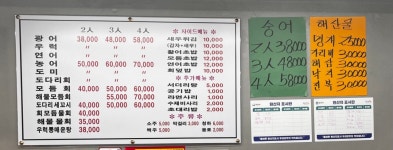 2人 3人 4人
광어 38,000 48,000 58,000
우럭 〃 〃 〃
연어 〃 〃 〃
농어 50,000 60,000 70,000
도미 〃 〃 〃
도다리회 〃 〃 〃
모듬회 40,000 50,000 60,000
해물모듬회 70,000
도다리세꼬시 40,000 50,000 60,000
회모듬물회 40,000
해물물회 35,000
우럭통매운탕 38,000
※ 사이드메뉴 ※
새우튀김 10,000
(감자+새우)
멍게초밥 12,000
모듬초밥 12,000
연어초밥 12,000
회덮밥 10,000
※ 추가메뉴 ※
서더리탕 5,000
공기밥 1,000
라면사리 2,000
수제비사리 2,000
초대리밥 2,000
※ 주류 ※
소주 5,000 막걸리 3,000 청하 6,000
맥주 5,000 음료 2,000
숭어
2人 38000
3人 48000
4人 58000
해산물
멍게 25000
해삼 30000
낙지 30000
전복 30000
원산지 표시판
원산지 표시판